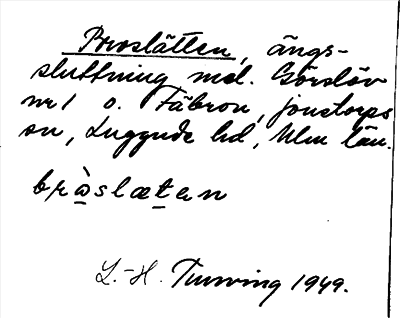 Broslätten, ängs-
sluttning mel. Görslöv
nr 1 o. Fäbron, Jonstorps
sn, Luggude hd, Mlm län.
bràslætan
L.-H. Tunving 1949.